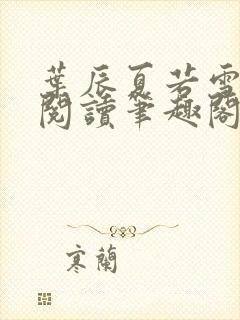 葉辰夏若雪
閱讀筆趣閣
寒蘭